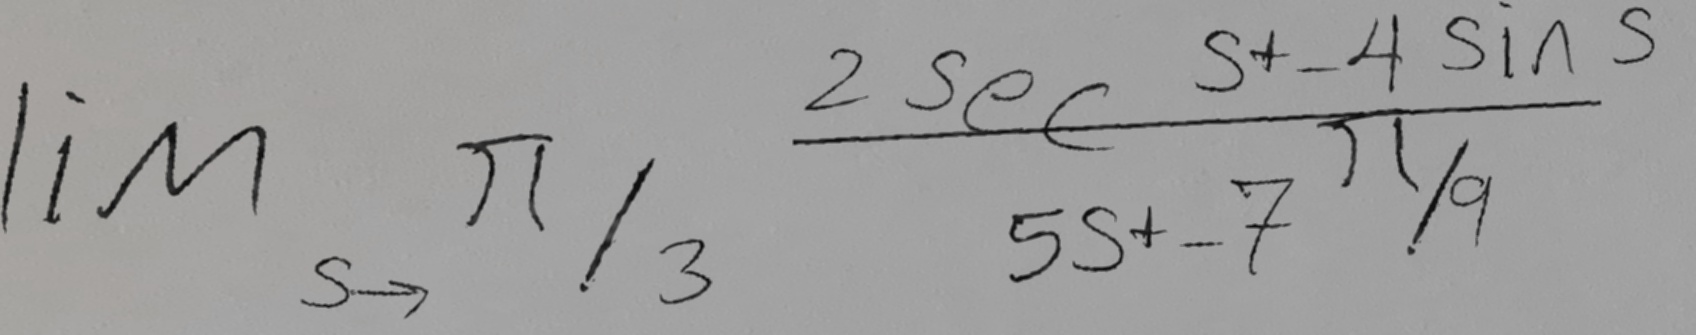 lim s→ π/3 (2 sec s + -4 sin s)/(5s + -7π/9)